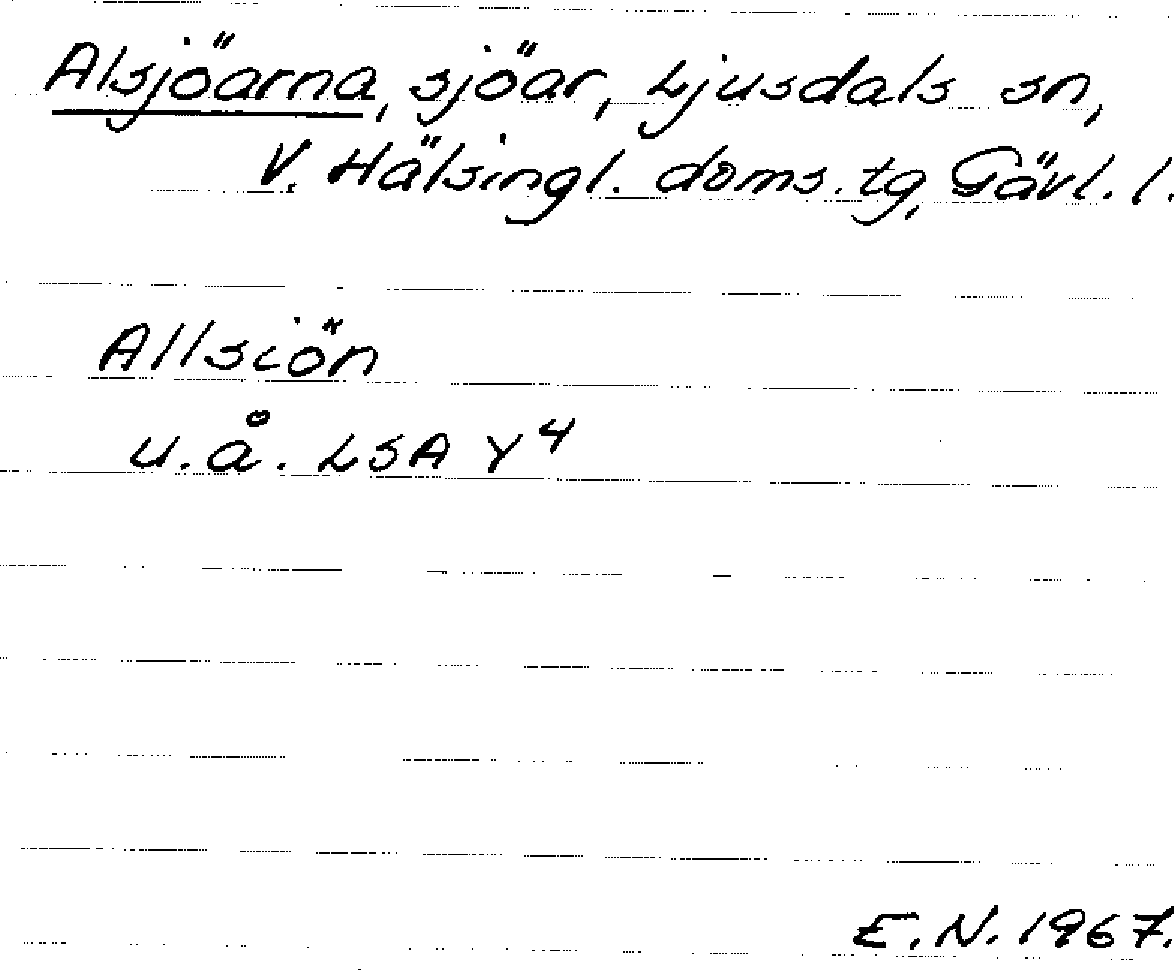 Alsjöarna, sjöar, Ljusdals sn,
V. Hälsingl. doms. tg, Gävl. l.
Allsiön
u.å. LSA Y4
E.N. 1967.